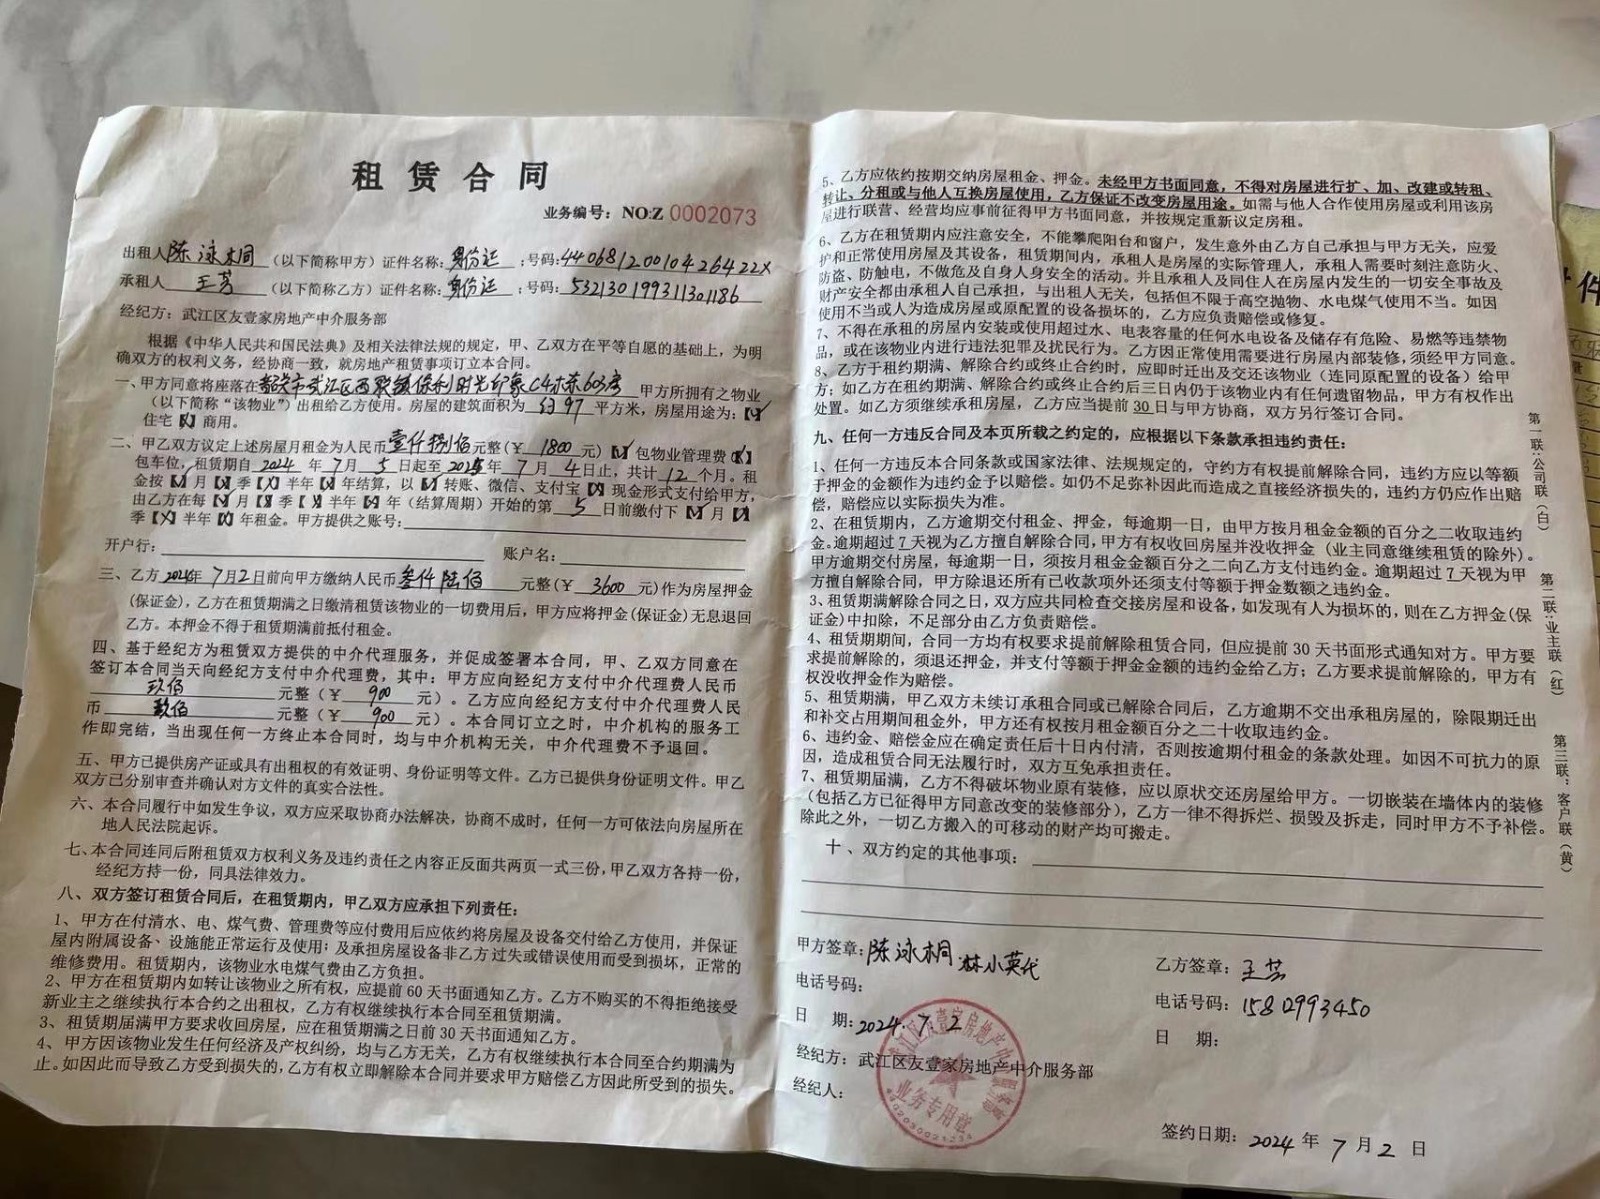 租赁合同
业务编号：NO:Z 0002073
出租人陈泳桐（以下简称甲方）证件名称：身份证；号码：44068120010426422X
承租人 王芳（以下简称乙方）证件名称：身份证；号码：532130199311301186
经纪方：武江区友壹家房地产中介服务部
根据《中华人民共和国民法典》及相关法律法规的规定，甲、乙双方在平等自愿的基础上，为明
确双方的权利义务，经协商一致，就房地产租赁事项订立本合同。
一、甲方同意将座落在韶关市武江区西联镇保利时光印象C4栋603房 甲方所拥有之物业
（以下简称“该物业”）出租给乙方使用。房屋的建筑面积为 约97 平方米，房屋用途为：【√】
住宅【】商用。
二、甲乙双方议定上述房屋月租金为人民币壹仟捌佰元整（￥ 1800 元）【】包物业管理费【】
包车位，租赁期自 2024 年 7 月 5 日起至 2025 年 7 月 4 日止，共计 12 个月。租
金按【】月【】季【】半年【】年结算，以【】转账、微信、支付宝【】现金形式支付给甲方，
由乙方在每【】月【】季【】半年【】年（结算周期）开始的第 5 日前缴付下【】月【】
季【】半年【】年租金。甲方提供之账号：
开户行： 账户名：
三、乙方 2024年 7月2日前向甲方缴纳人民币 叁仟陆佰 元整（￥ 3600 元）作为房屋押金
(保证金)，乙方在租赁期满之日缴清租赁该物业的一切费用后，甲方应将押金(保证金)无息退回
乙方。本押金不得于租赁期满前抵付租金。
四、基于经纪方为租赁双方提供的中介代理服务，并促成签署本合同，甲、乙双方同意在
签订本合同当天向经纪方支付中介代理费，其中：甲方应向经纪方支付中介代理费人民币
玖佰 元整（￥ 900 元）。乙方应向经纪方支付中介代理费人民
币 玖佰 元整（￥ 900 元）。本合同订立之时，中介机构的服务工
作即完结，当出现任何一方终止本合同时，均与中介机构无关，中介代理费不予退回。
五、甲方已提供房产证或具有出租权的有效证明、身份证明等文件。乙方已提供身份证明文件。甲乙
双方已分别审查并确认对方文件的真实合法性。
六、本合同履行中如发生争议，双方应采取协商办法解决，协商不成时，任何一方可依法向房屋所在
地人民法院起诉。
七、本合同连同后附租赁双方权利义务及违约责任之内容正反面共两页一式三份，甲乙双方各持一份，
经纪方持一份，同具法律效力。
八、双方签订租赁合同后，在租赁期内，甲乙双方应承担下列责任：
1、甲方在付清水、电、煤气费、管理费等应付费用后应依约将房屋及设备交付给乙方使用，并保证
屋内附属设备、设施能正常运行及使用；及承担房屋设备非乙方过失或错误使用而受到损坏，正常的
维修费用。租赁期内，该物业水电煤气费由乙方负担。
2、甲方在租赁期内如转让该物业之所有权，应提前60天书面通知乙方。乙方不购买的不得拒绝接受
新业主之继续执行本合约之出租权，乙方有权继续执行本合同至租赁期满。
3、租赁期届满甲方要求收回房屋，应在租赁期满之日前30天书面通知乙方。
4、甲方因该物业发生任何经济及产权纠纷，均与乙方无关，乙方有权继续执行本合同至合约期满为
止。如因此而导致乙方受到损失的，乙方有权立即解除本合同并要求甲方赔偿乙方因此所受到的损失。
5、乙方应依约按期交纳房屋租金、押金。未经甲方书面同意，不得对房屋进行扩、加、改建或转租、
转让、分租或与他人互换房屋使用，乙方保证不改变房屋用途。如需与他人合作使用房屋或利用该房
屋进行联营、经营均应事前征得甲方书面同意，并按规定重新议定房租。
6、乙方在租赁期内应注意安全，不能攀爬阳台和窗户，发生意外由乙方自己承担与甲方无关，应爱
护和正常使用房屋及其设备，租赁期间内，承租人是房屋的实际管理人，承租人需要时刻注意防火、
防盗、防触电，不做危及自身人身安全的活动。并且承租人及同住人在房屋内发生的一切安全事故及
财产安全都由承租人自己承担，与出租人无关，包括但不限于高空抛物、水电煤气使用不当。如因
使用不当或人为造成房屋或原配置的设备损坏的，乙方应负责赔偿或修复。
7、不得在承租的房屋内安装或使用超过水、电表容量的任何水电设备及储存有危险、易燃等违禁物
品，或在该物业内进行违法犯罪及扰民行为。乙方因正常使用需要进行房屋内部装修，须经甲方同意。
8、乙方于租约期满、解除合约或终止合约时，应即时迁出及交还该物业（连同原配置的设备）给甲
方；如乙方在租约期满、解除合约或终止合约后三日内仍于该物业内有任何遗留物品，甲方有权作出
处置。如乙方须继续承租房屋，乙方应当提前30日与甲方协商，双方另行签订合同。
九、任何一方违反合同及本页所载之约定的，应根据以下条款承担违约责任：
1、任何一方违反本合同条款或国家法律、法规规定的，守约方有权提前解除合同，违约方应以等额
于押金的金额作为违约金予以赔偿。如仍不足弥补因此而造成之直接经济损失的，违约方仍应作出赔
偿，赔偿应以实际损失为准。
2、在租赁期内，乙方逾期交付租金、押金，每逾期一日，由甲方按月租金金额的百分之二收取违约
金。逾期超过7天视为乙方擅自解除合同，甲方有权收回房屋并没收押金（业主同意继续租赁的除外）。
甲方逾期交付房屋，每逾期一日，须按月租金金额百分之二向乙方支付违约金。逾期超过7天视为甲
方擅自解除合同，甲方除退还所有已收款项外还须支付等额于押金数额之违约金。
3、租赁期满解除合同之日，双方应共同检查交接房屋和设备，如发现有人为损坏的，则在乙方押金(保
证金)中扣除，不足部分由乙方负责赔偿。
4、租赁期期间，合同一方均有权要求提前解除租赁合同，但应提前30天书面形式通知对方。甲方要
求提前解除的，须退还押金，并支付等额于押金金额的违约金给乙方；乙方要求提前解除的，甲方有
权没收押金作为赔偿。
5、租赁期满，甲乙双方未续订承租合同或已解除合同后，乙方逾期不交出承租房屋的，除限期迁出
和补交占用期间租金外，甲方还有权按月租金额百分之二十收取违约金。
6、违约金、赔偿金应在确定责任后十日内付清，否则按逾期付租金的条款处理。如因不可抗力的原
因，造成租赁合同无法履行时，双方互免承担责任。
7、租赁期届满，乙方不得破坏物业原有装修，应以原状交还房屋给甲方。一切嵌装在墙体内的装修
(包括乙方已征得甲方同意改变的装修部分)，乙方一律不得拆烂、损毁及拆走，同时甲方不予补偿。
除此之外，一切乙方搬入的可移动的财产均可搬走。
十、双方约定的其他事项：
甲方签章：陈泳桐 林小英代
电话号码：
日 期：2024.7.2
经纪方：武江区友壹家房地产中介服务部
经纪人：
乙方签章：王芳
电话号码：15812993450
日 期：
签约日期：2024 年 7 月 2 日
武江区友壹家房地产中介服务部
业务专用章
第一联：公司联（白）
第二联：业主联（红）
第三联：客户联（黄）
件